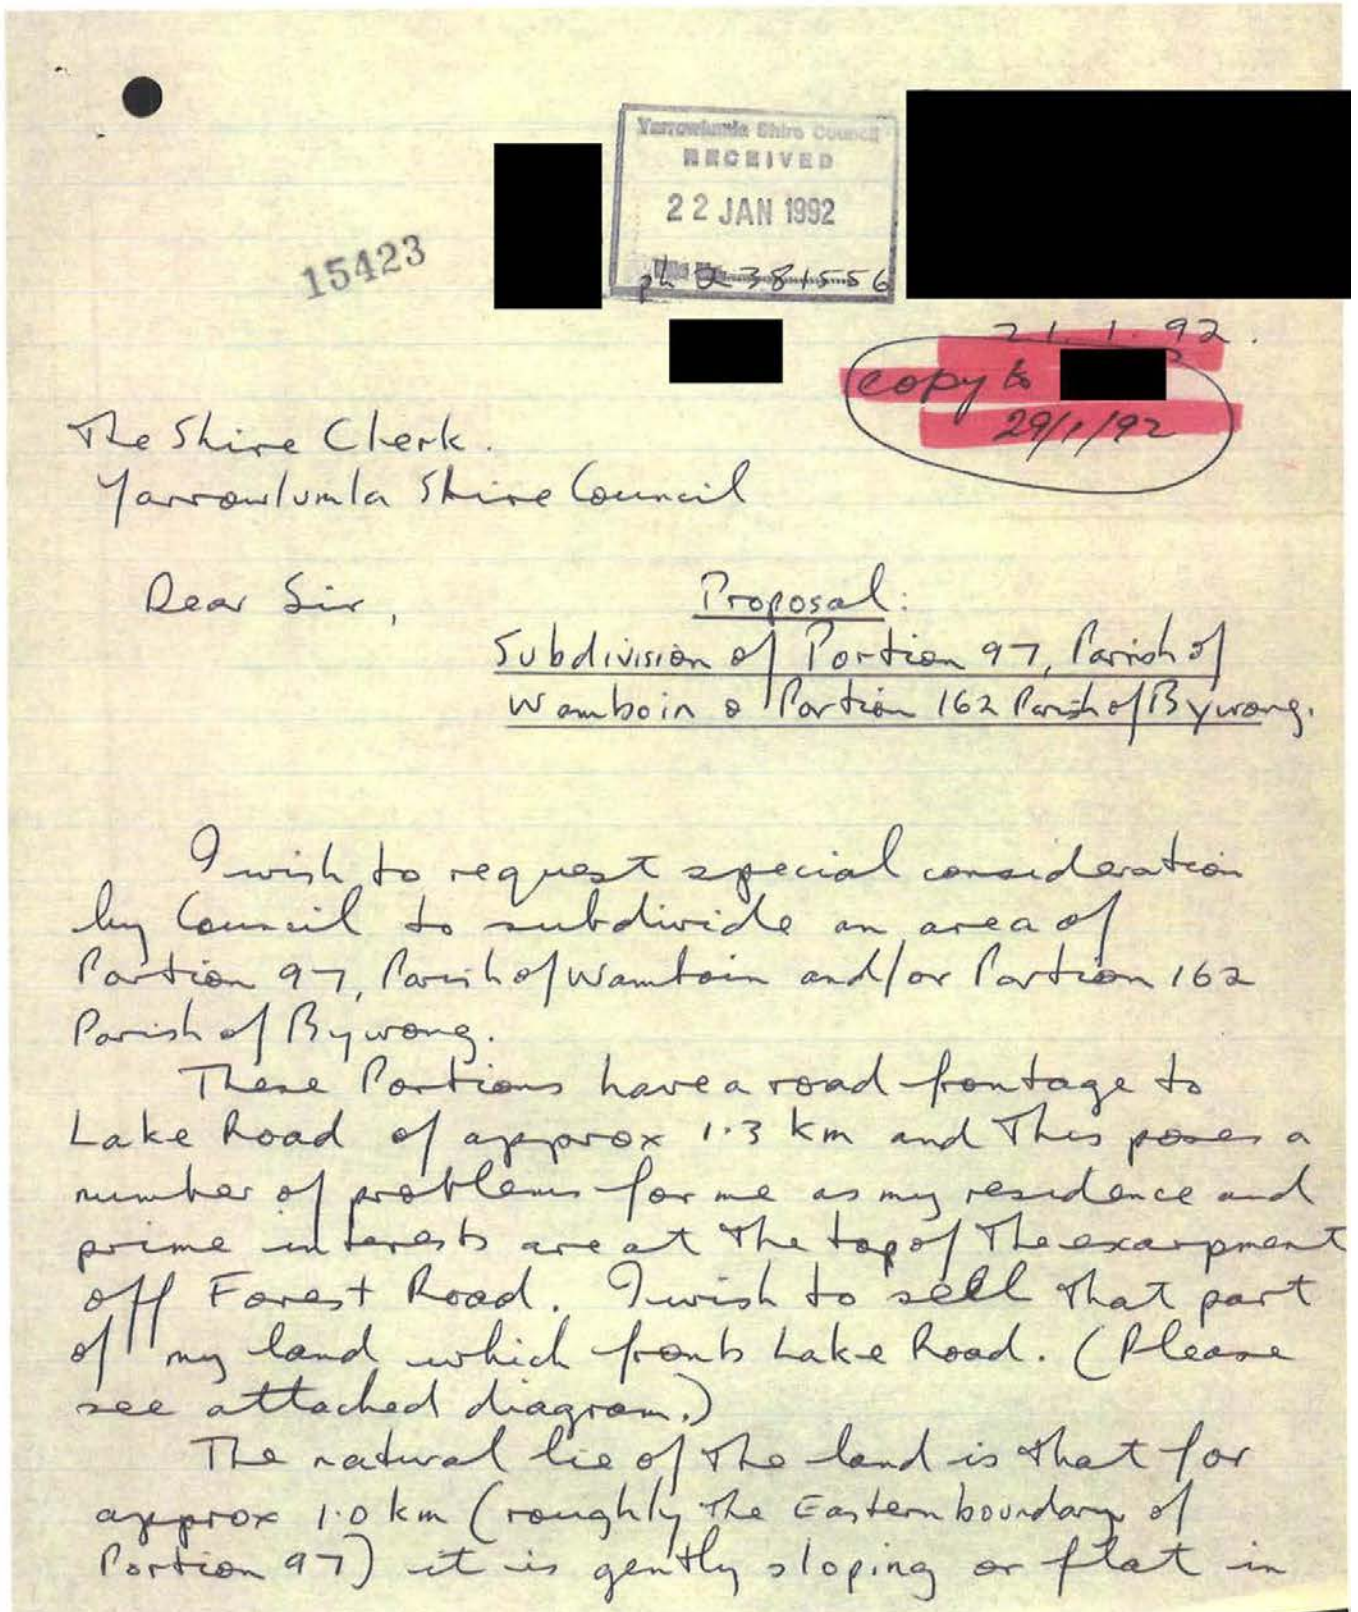 Yarrowlumla Shire Council
RECEIVED
22 JAN 1992
ph 2381556
15423
21.1.92.
copy to
29/1/92
The Shire Clerk.
Yarrowlumla Shire Council
Dear Sir,
Proposal:
Subdivision of Portion 97, Parish of
Wamboin & Portion 162 Parish of Bywong.
I wish to request special consideration
by Council to subdivide an area of
Portion 97, Parish of Wamboin and/or Portion 162
Parish of Bywong.
These Portions have a road frontage to
Lake Road of approx 1.3 km and this poses a
number of problems for me as my residence and
prime interests are at the top of the exarpment
off Forest Road. I wish to sell that part
of my land which fronts Lake Road. (Please
see attached diagram.)
The natural lie of the land is that for
approx 1.0 km (roughly the Eastern boundary of
Portion 97) it is gently sloping or flat in